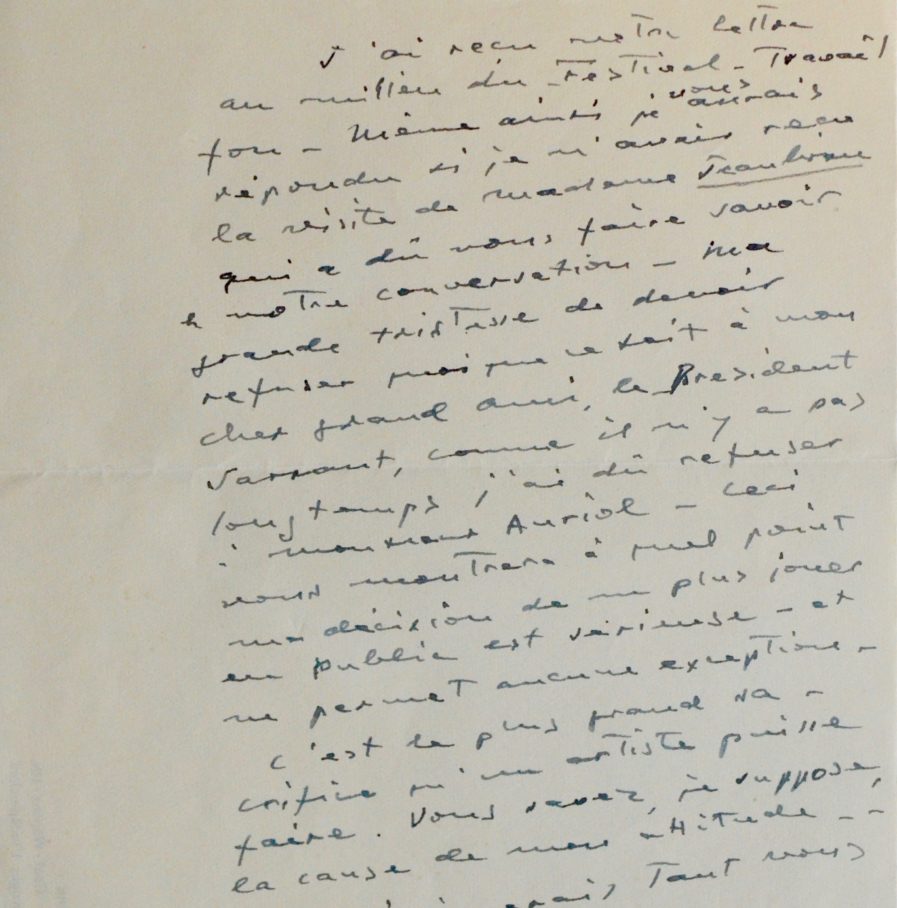 J'ai reçu votre lettre
au milieu du Festival - Travail
fou - Même ainsi je vous aurais
répondu si je n'avais reçu
la visite de madame
qui a dû vous faire savoir
notre conversation - Ma
grande tristesse de devoir
refuser quoique ce soit à mon
cher grand ami, le President
Sarraut, comme il n'y a pas
longtemps j'ai dû refuser
à monsieur Auriol - Ceci
vous montrera à quel point
ma décision de ne plus jouer
en public est sérieuse - et
ne permet aucune exception -
C'est le plus grand sa-
crifice qu'un artiste puisse
faire. Vous savez, je suppose,
la cause de mon attitude - -
Tant vous